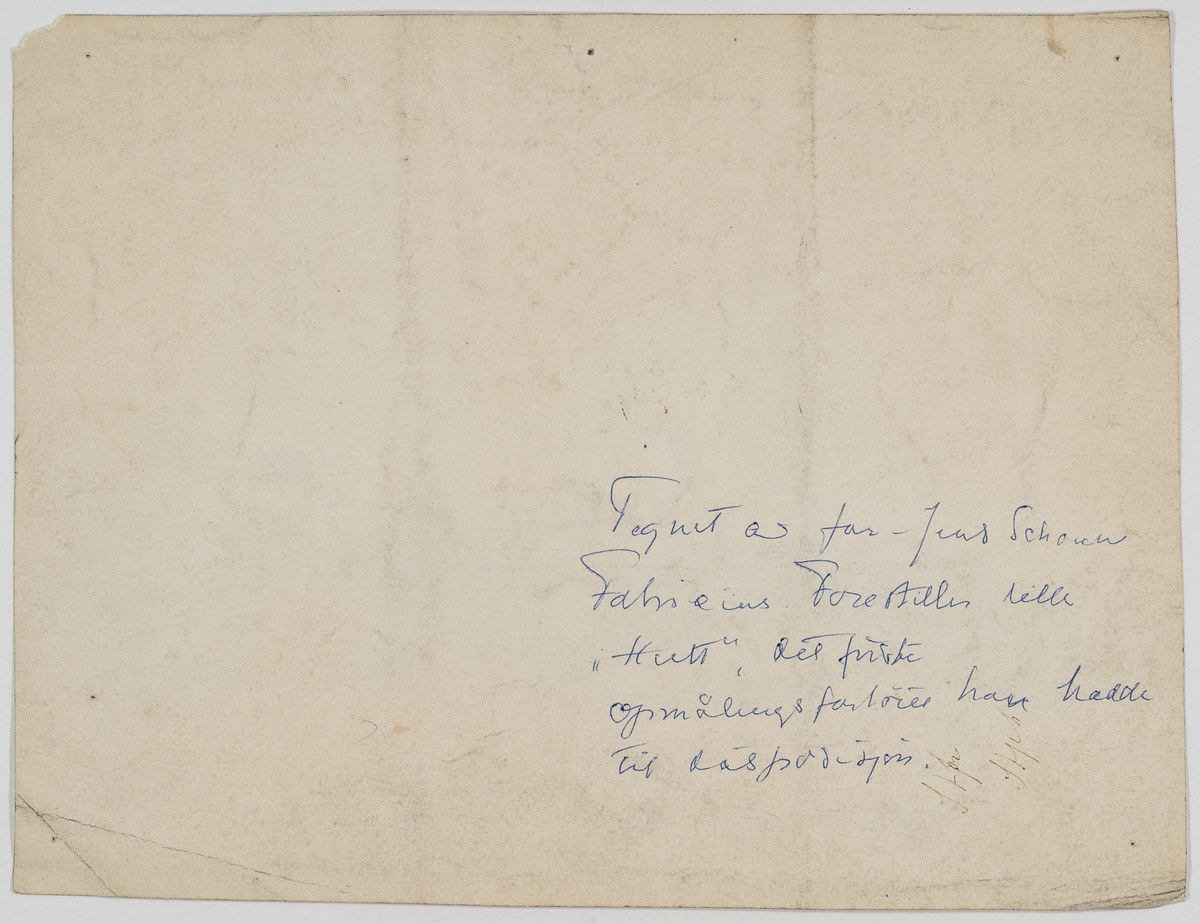 Tegnet av far - Jens Schouw
Fabricius. Forestiller lille
„Hett", det første
opmålingsfartöiet han hadde
til disposisjon.